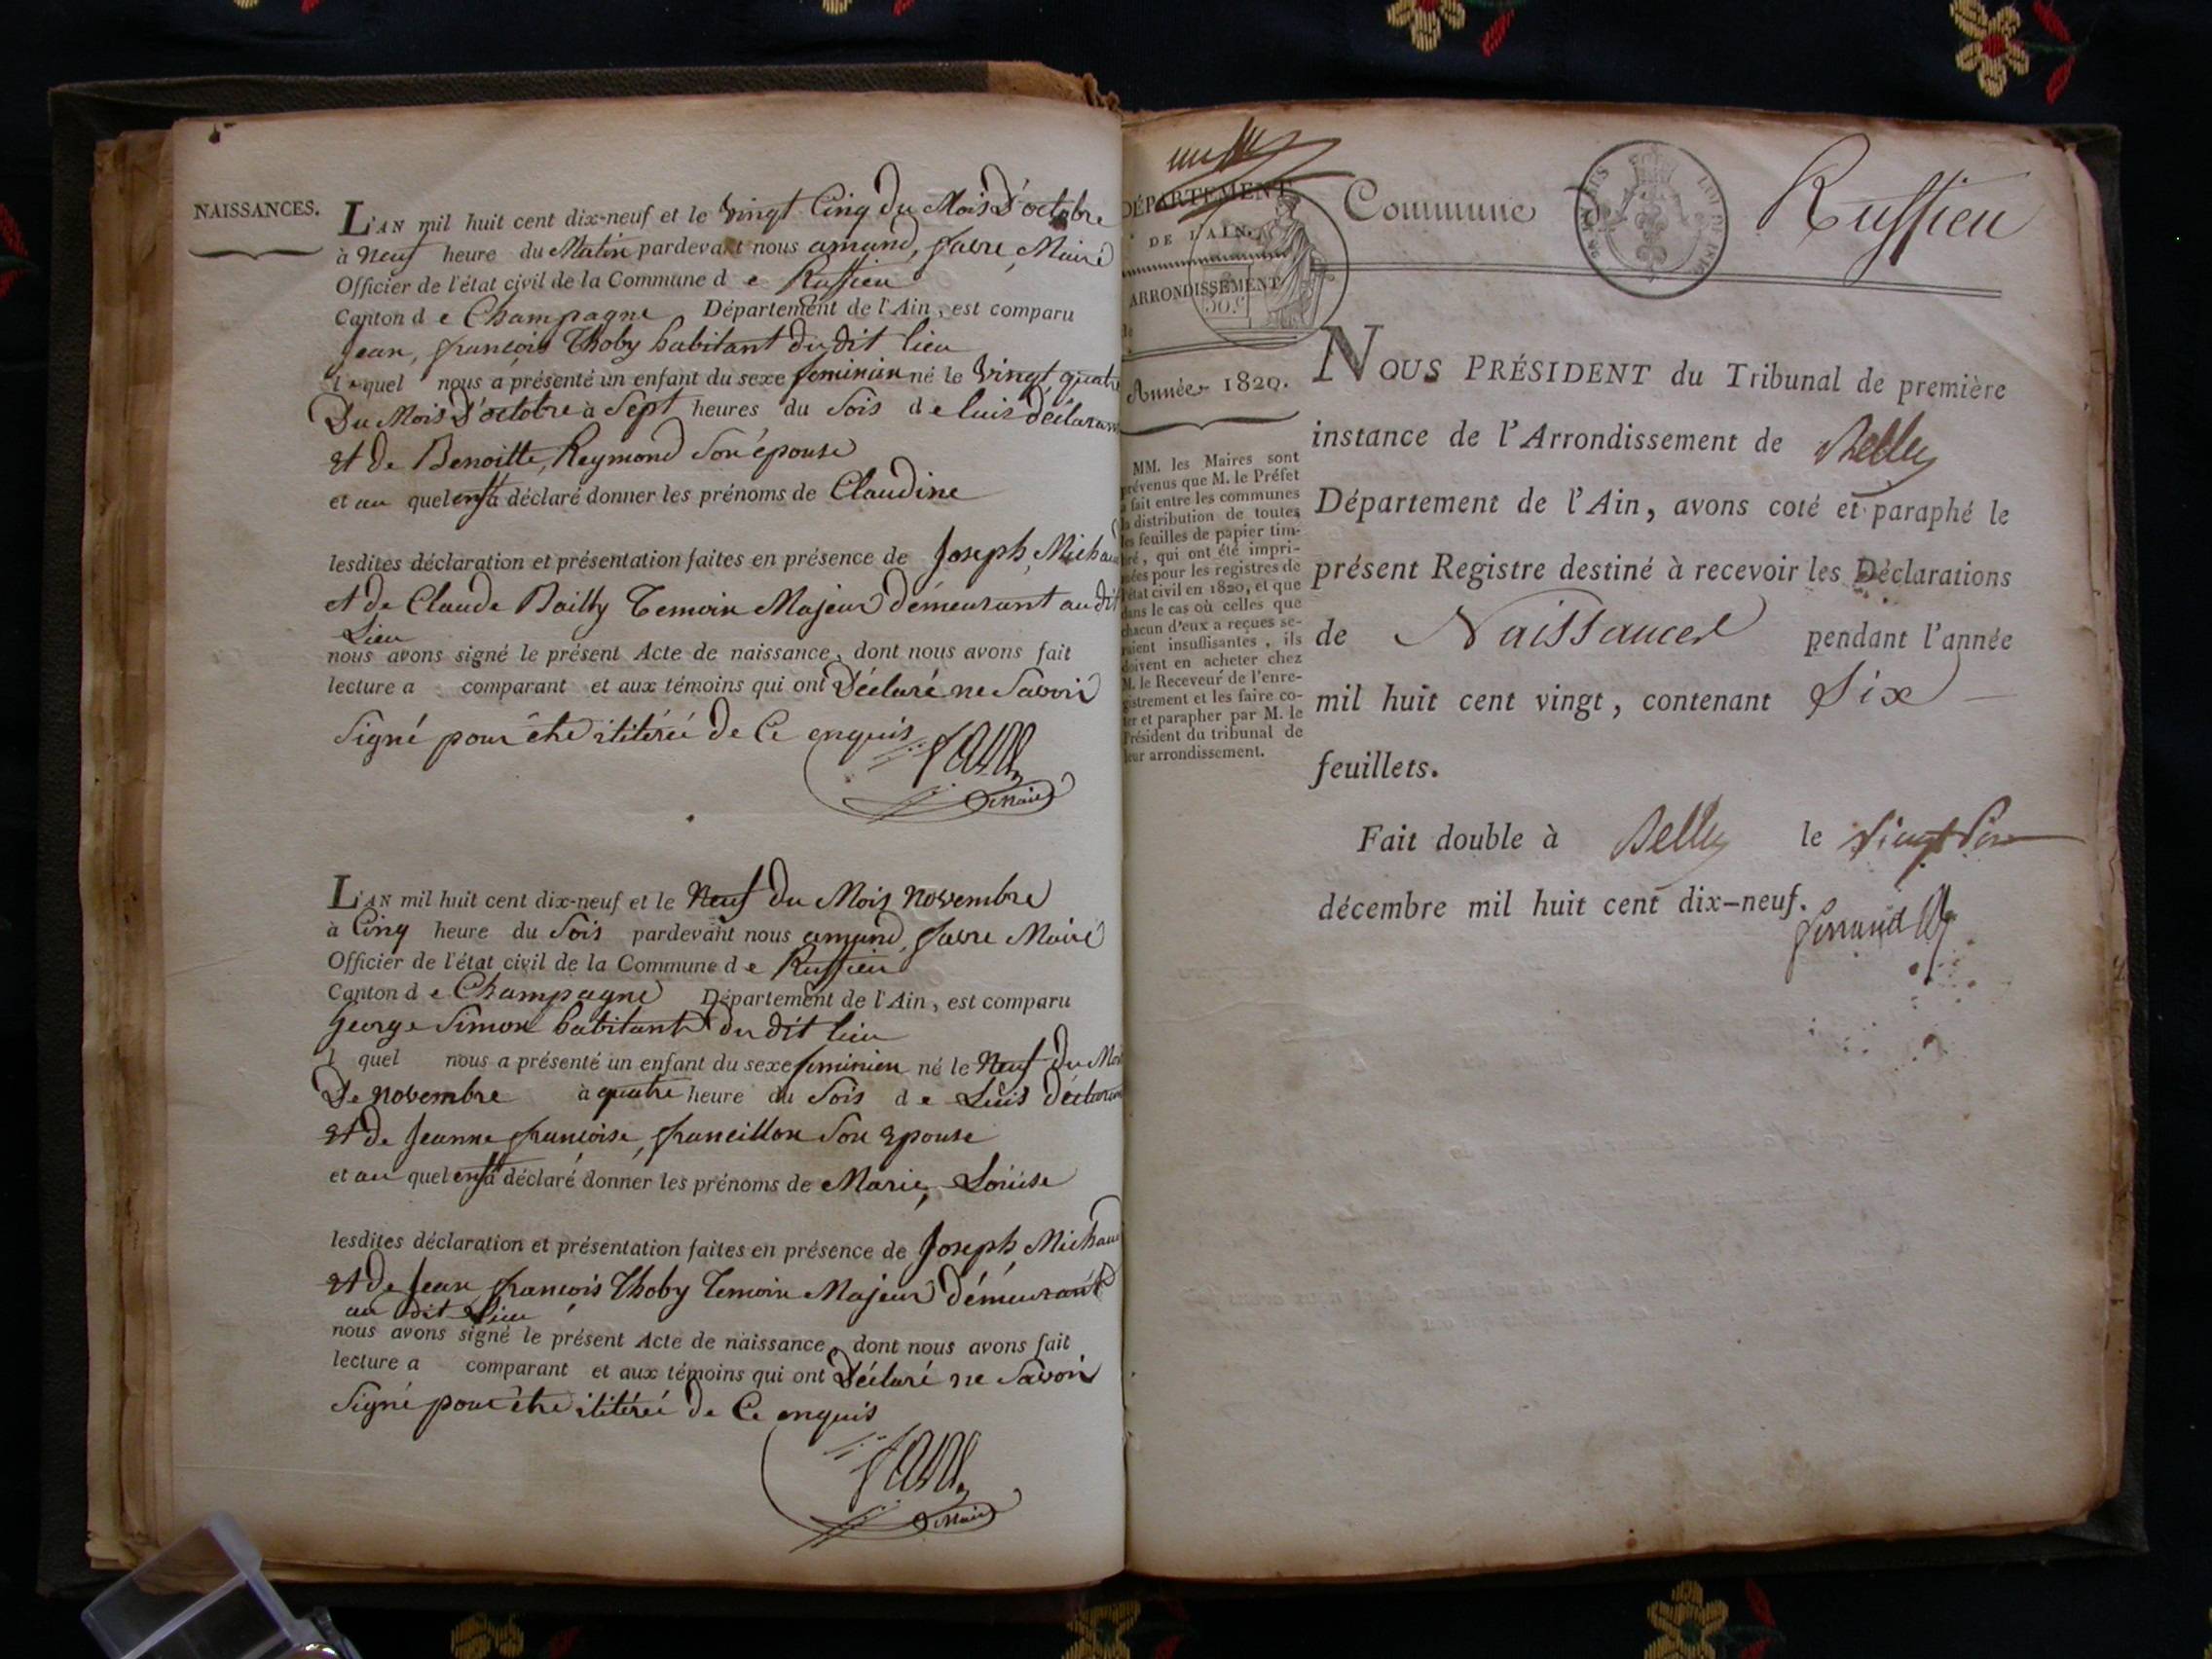 NAISSANCES.
L'AN mil huit cent dix-neuf et le vingt Cinq du Mois D'octobre
à neuf heure du Matin pardevant nous amand, favre, Maire
Officier de l'état civil de la Commune d e Ruffieu
Canton d e Champagne Département de l'Ain, est comparu
Jean, françois Thoby habitant du dit lieu
lequel nous a présenté un enfant du sexe feminien né le vingt quatre
Du Mois D'octobre à Sept heures du Soir d e luis déclarant
et de Benoitte, Reymond Son épouse
et au quel enft a déclaré donner les prénoms de Claudine
lesdites déclaration et présentation faites en présence de Joseph, Michaud
et de Claude Bailly Temoin Majeur démeurant au dit
Lieu
nous avons signé le présent Acte de naissance, dont nous avons fait
lecture a comparant et aux témoins qui ont Déclaré ne Savoir
Signé pour être ititéré de Ce enquis
favre
Maire
L'AN mil huit cent dix-neuf et le Neuf du Mois Novembre
à Cinq heure du Soir pardevant nous amand, favre Maire
Officier de l'état civil de la Commune d e Ruffieu
Canton d e Champagne Département de l'Ain, est comparu
george Simon habitant du dit lieu
l quel nous a présenté un enfant du sexe feminien né le Neuf du Mois
De novembre à quatre heure du Soir d e Luis déclarant
et de Jeanne françoise, francillon Son Epouse
et au quel enft a déclaré donner les prénoms de Marie, Louise
lesdites déclaration et présentation faites en présence de Joseph, Michaud
et de Jean françois Thoby Temoin Majeur démeurant
au dit Lieu
nous avons signé le présent Acte de naissance, dont nous avons fait
lecture a comparant et aux témoins qui ont Déclaré ne Savoir
Signé pour être ititéré de Ce enquis
favre
Maire
DÉPARTEMENT
DE L'AIN.
ARRONDISSEMENT
de
50.c
Année 1820.
MM. les Maires sont
prévenus que M. le Préfet
a fait entre les communes
la distribution de toutes
les feuilles de papier tim-
bré, qui ont été impri-
mées pour les registres de
l'état civil en 1820, et que
dans le cas où celles que
chacun d'eux a reçues se-
raient insuffisantes, ils
doivent en acheter chez
M. le Receveur de l'enre-
gistrement et les faire co-
ter et parapher par M. le
Président du tribunal de
leur arrondissement.
Commune Ruffieu
NOUS PRÉSIDENT du Tribunal de première
instance de l'Arrondissement de Belley
Département de l'Ain, avons coté et paraphé le
présent Registre destiné à recevoir les Déclarations
de Naissances pendant l'année
mil huit cent vingt, contenant Six
feuillets.
Fait double à Belley le vingt Six
décembre mil huit cent dix-neuf.